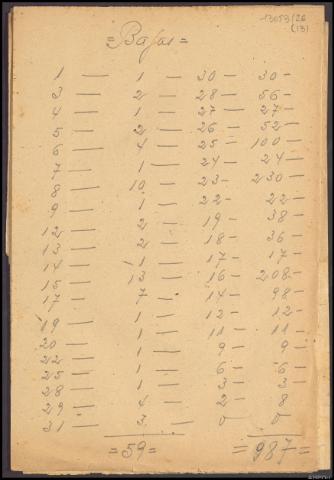 13059/26
(13)
=Bajas=
1 — 1 — 30 — 30 —
3 — 2 — 28 — 56 —
4 — 1 — 27 — 27 —
5 — 2 — 26 — 52 —
6 — 4 — 25 — 100 —
7 — 1 — 24 — 24 —
8 — 10 — 23 — 230 —
9 — 1 — 22 — 22 —
12 — 2 — 19 — 38 —
13 — 2 — 18 — 36 —
14 — 1 — 17 — 17 —
15 — 13 — 16 — 208 —
17 — 7 — 14 — 98 —
19 — 1 — 12 — 12 —
20 — 1 — 11 — 11 —
22 — 1 — 9 — 9 —
25 — 1 — 6 — 6 —
28 — 1 — 3 — 3 —
29 — 4 — 2 — 8
31 — 3 — 0 0
=59= =987=